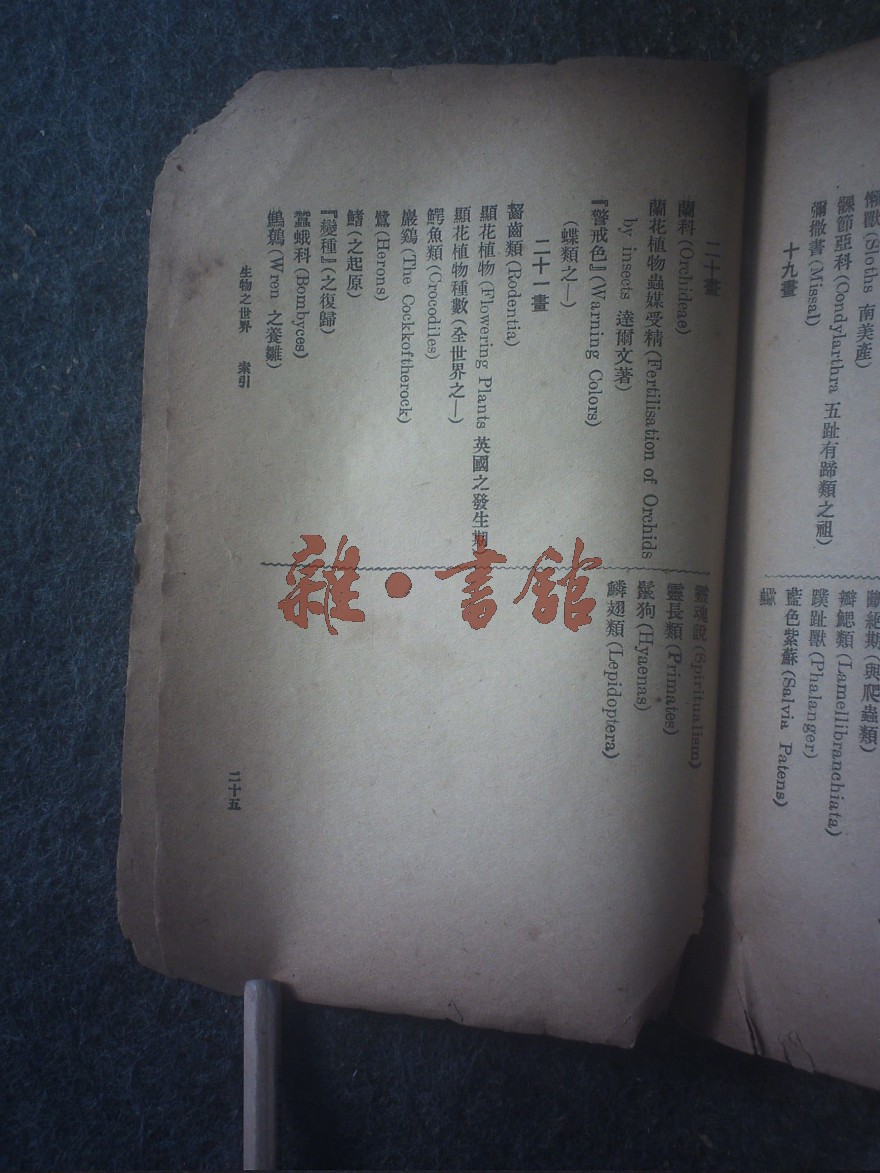 懶獸(Sloths 南美產)
髁節亞科(Condylarthra 五趾有蹄類之祖)
彌撒書(Missal)
十九畫
斷絕期(與爬蟲類)
瓣鰓類(Lamellibranchiata)
蹼趾獸(Phalanger)
藍色紫蘇(Salvia Patens)
二十畫
蘭科(Orchideae)
蘭花植物蟲媒受精(Fertilisation of Orchids
by insects 達爾文著)
『警戒色』(Warning Colors)
(蝶類之—)
二十一畫
齧齒類(Rodentia)
顯花植物(Flowering Plants 英國之發生期)
顯花植物種數(全世界之—)
鰐魚類(Crocodiles)
巖鷄(The Cockkoftherock)
鷺(Herons)
鰭(之起原)
『變種』(之復歸)
蠶蛾科(Bombyces)
鷦鷯(Wren 之養雛)
靈魂說(Spiritualism)
靈長類(Primates)
鬣狗(Hyaenas)
鱗翅類(Lepidoptera)
生物之世界 索引
二十五
雜·書館